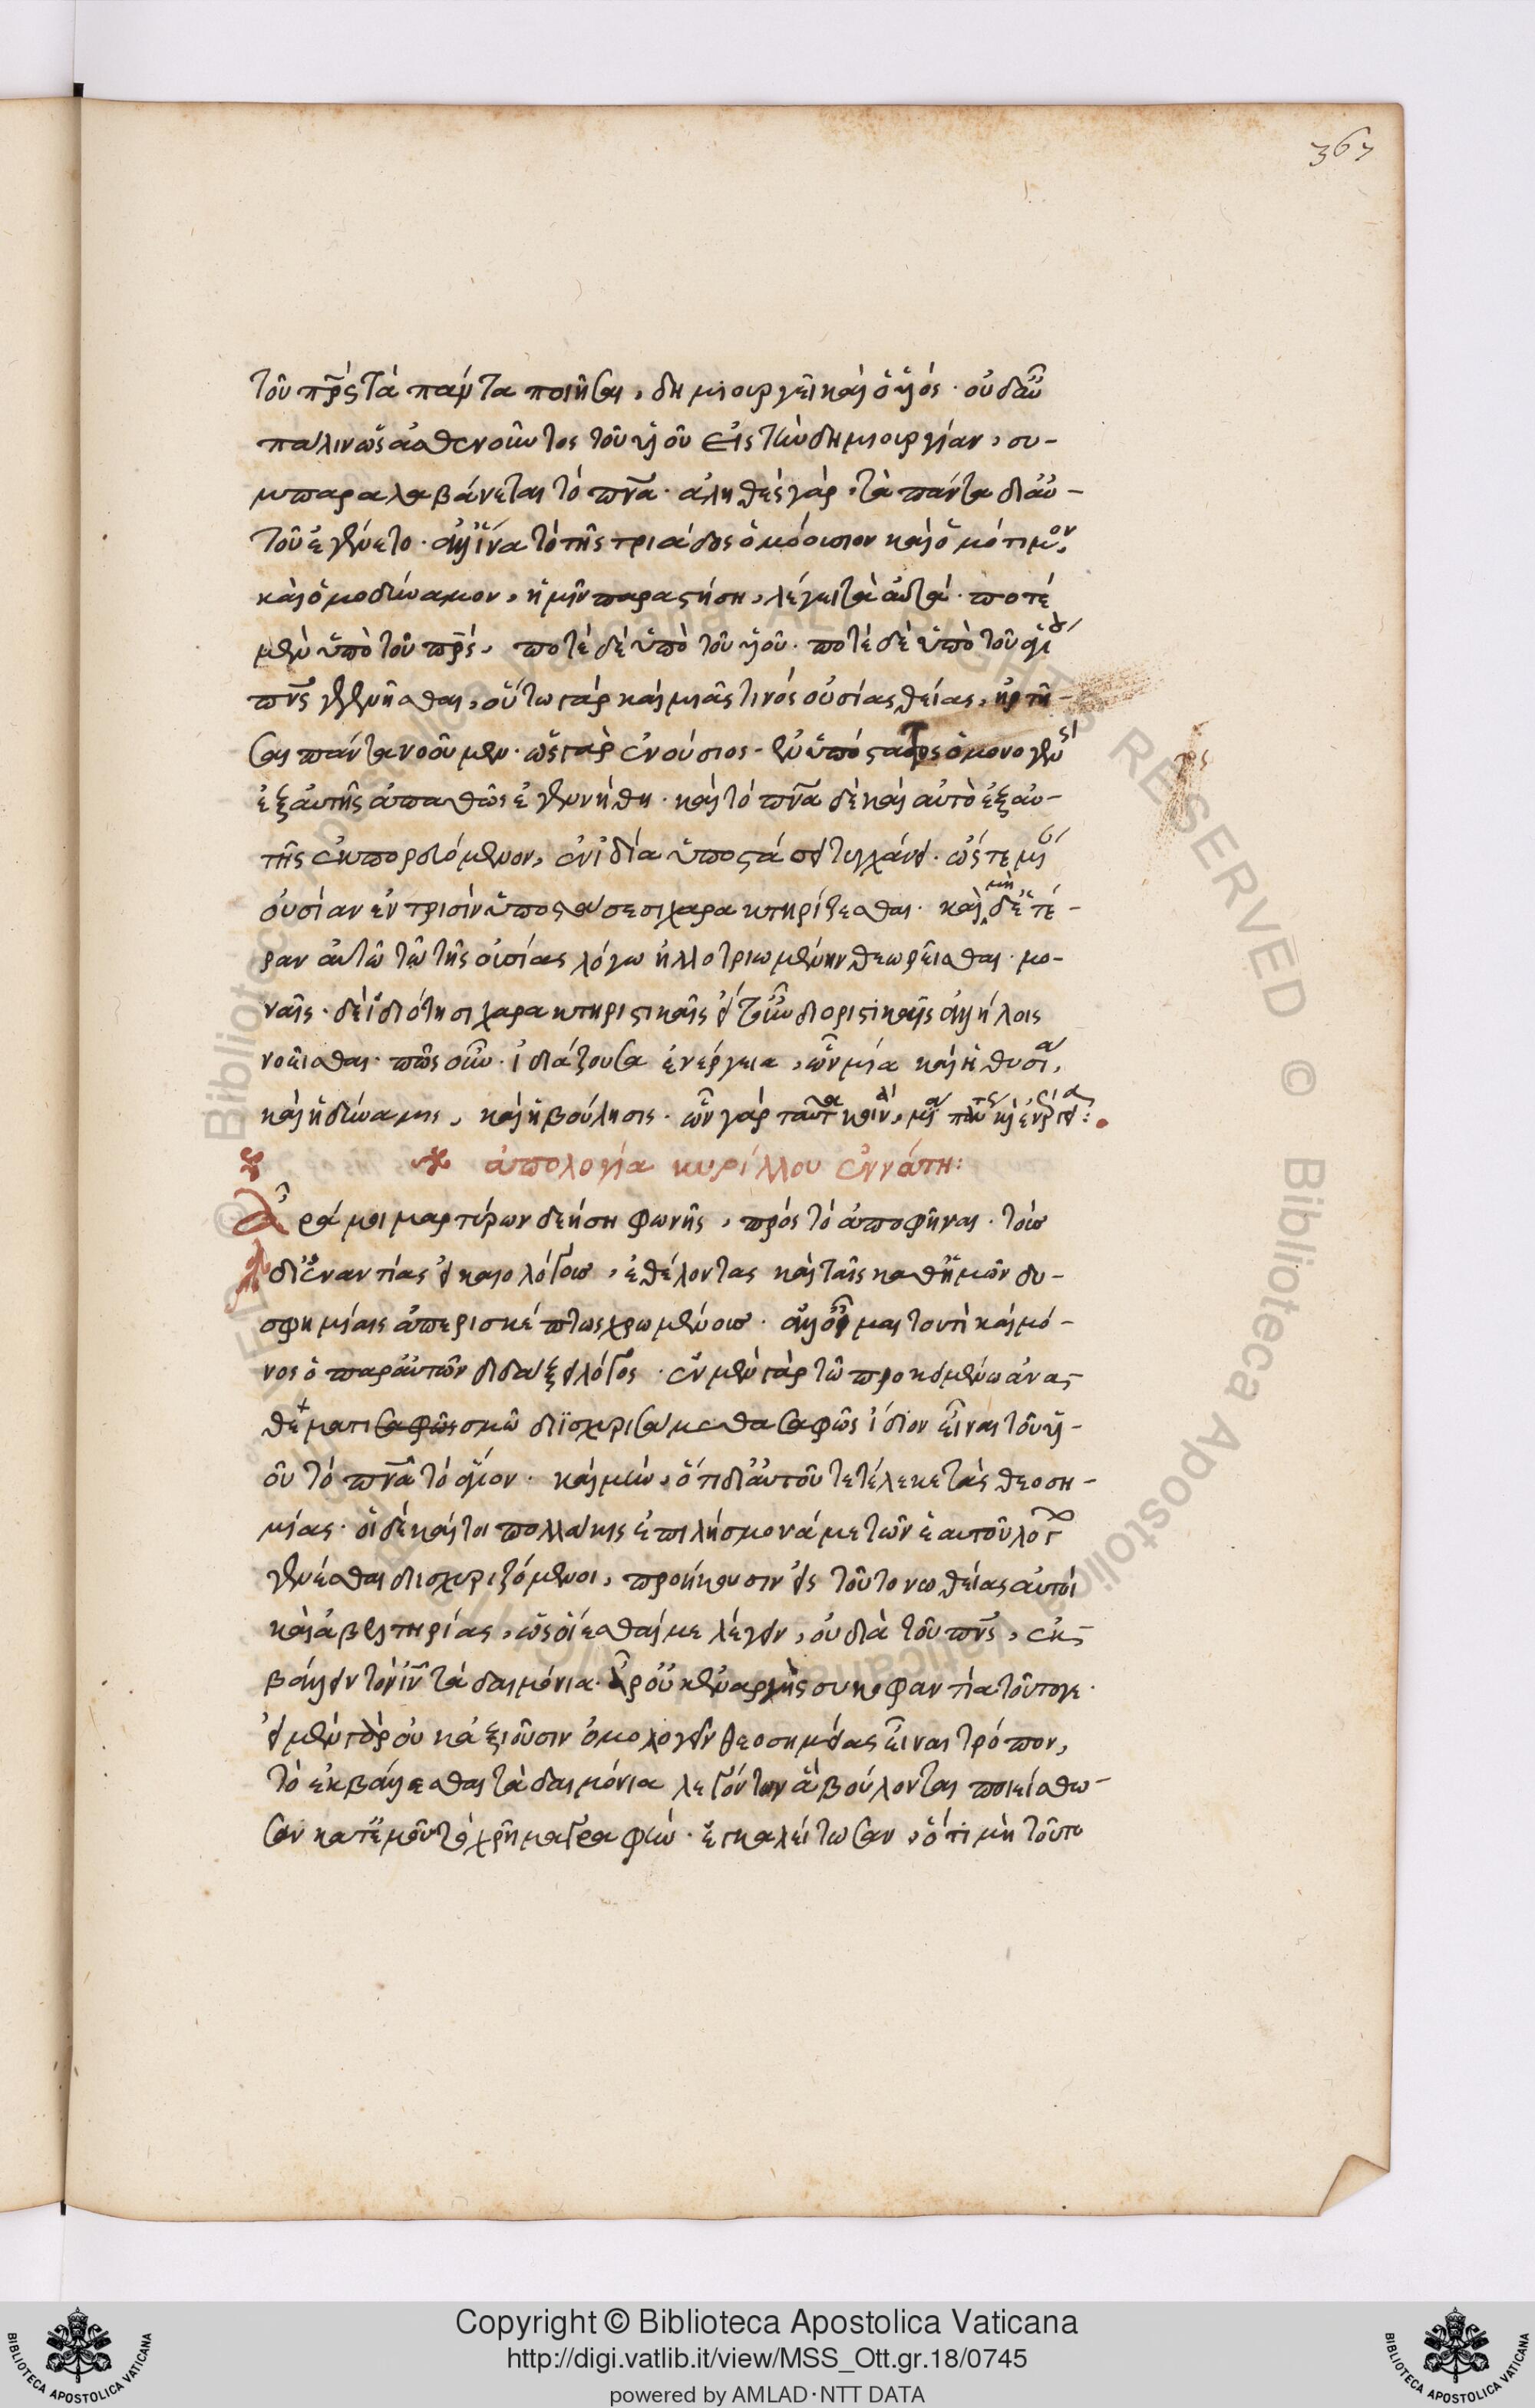 367
τοῦ πρ̅ς τὰ πάντα ποιῆσαι, δημιουργεῖ καὶ ὁ υἱός. οὐδ' αὖ
πάλιν ὡς ἀσθενοῦντος τοῦ υἱοῦ εἰς τὴν δημιουργίαν, συ-
μπαραλαβάνεται τὸ πν̅α. ἀληθὲς γάρ, τὰ πάντα δι' αὐ-
τοῦ ἐγένετο. ἀλλ' ἵνα τὸ τῆς τριάδος ὁμοούσιον καὶ ὁμότιμον,
καὶ ὁμοδύναμον, ἡμῖν παραστήση, λέγει τὰ αὐτά. ποτὲ
μὲν ὑπὸ τοῦ πρ̅ς, ποτὲ δὲ ὑπὸ τοῦ υἱοῦ. ποτὲ δὲ ὑπὸ τοῦ ἁγίου
πν̅ς γεγενῆσθαι, οὕτω γὰρ καὶ μιᾶς τινός οὐσίας θείας, ἠρτῆ-
σαι πάντα νοοῦμεν. ὡς γὰρ ἐνούσιος ὁ μονογενὴς
ἐξ αὐτῆς ἀπαθῶς ἐγεννήθη. καὶ τὸ πν̅α δὲ καὶ αὐτὸ ἐξ αὐ-
τῆς ἐκπορευόμενον, ἐν ἰδία ὑποστάσει τυγχάνει. ὥστε μίαν
οὐσίαν ἐν τρισὶν ὑποστάσεσι χαρακτηρίζεσθαι. καὶ μὴ δὲ ἑτέ-
ραν αὐτῶ τῶ τῆς οὐσίας λόγω ἠλλοτριωμένην θεωρεῖσθαι. μο-
ναῖς. δὲ ἰδιότησι χαρακτηριστικαῖς εἴτουν διοριστικαῖς ἀλλήλοις
νοεῖσθαι. πῶς οὖν. ἰδιάζουσα ἐνέργεια, ὧν μία καὶ ἡ θυσία,
καὶ ἡ δύναμις, καὶ ἡ βούλησις. ὧν γὰρ ταῦτα κοινά, μία πάντως καὶ ἐνέργεια:
ἀπολογία κυρίλλου ἐννάτη:
Ἆρά μοι μαρτύρων δεήση φωνῆς, πρὸς τὸ ἀποφῆναι. τοὺς
δι' ἐναντίας εἰκαιολόγους, ἐθέλοντας καὶ ταῖς καθ' ἡμῶν δυ-
σφημίαις ἀπερισκέπτως χρωμένους. ἀλλ' οἶμαι τουτὶ καὶ μό-
νος ὁ παρ' αὐτῶν διδάξει λόγος. ἐν μὲν γὰρ τῶ προκειμένω ἀνα-
θεματισμῶ διϊσχυρισάμεθα σαφῶς ἴδιον εἶναι τοῦ υἱ-
οῦ τὸ πν̅α τὸ ἅγιον. καὶ μὴν, ὅτι δι' αὐτοῦ τετέλεκε τὰς θεοση-
μίας. οἱ δὲ καίτοι πολλάκις ἐπιλήσμονά με τῶν ἑαυτοῦ λόγων
γενέσθαι διισχυριζόμενοι, προήκουσιν εἰς τοῦτο νωθείας αὐτοὶ
καὶ ἀβελτηρίας, ὡς οἴεσθαί με λέγειν, οὐ διὰ τοῦ πν̅ς, ἐκ-
βάλλειν τὸν ἰν̅ τὰ δαιμόνια. ἆρ' οὐκ ἐναργὴς συκοφαντία τοῦτο γε.
εἰ μὲν γὰρ οὐκ ἀξιοῦσιν ὁμολογεῖν θεοσημείας εἶναι τρόπον,
τὸ ἐκβάλλεσθαι τὰ δαιμόνια λεγόντων ἃ βούλονται ποιείσθω-
σαν κατ' ἐμοῦ τὸ χρῆμα γραφήν. ἐγκαλείτωσαν, ὅτι μὴ τοῦτο
Copyright © Biblioteca Apostolica Vaticana
http://digi.vatlib.it/view/MSS_Ott.gr.18/0745
powered by AMLAD·NTT DATA